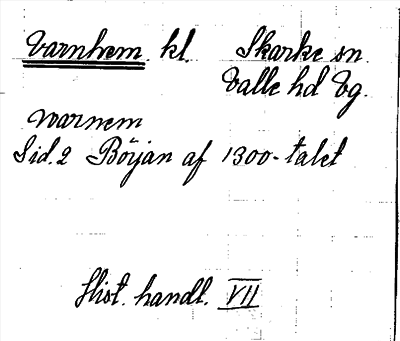 Varnhem kl. Skarke sn
Valle hd Vg.
warnem
Sid. 2 Början af 1300-talet
Hist. handl. VII